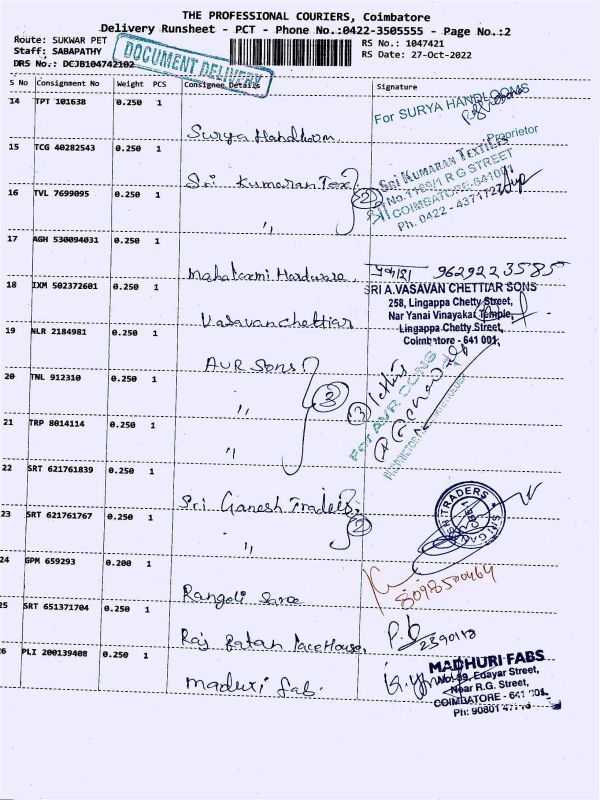 THE PROFESSIONAL COURIERS, Coimbatore
Delivery Runsheet - PCT - Phone No.:0422-3505555 - Page No.:2
Route: SUKWAR PET
RS No.: 1047421
Staff: SABAPATHY
RS Date: 27-Oct-2022
DRS No.: DCJB104742102
DOCUMENT DELIVERY
S No Consignment No Weight PCS Consignee Details Signature
14 TPT 101638 0.250 1
For SURYA HANDLOOMS
Proprietor
Surya Handloom
15 TCG 40282543 0.250 1
Sri Kumaran Tex
2
Sri KUMARAN TEXTILES
No.1169/1 R.G STREET
COIMBATORE-641001
Ph. 0422 -
16 TVL 7699095 0.250 1
"
17 AGH 530094031 0.250 1
Mahalaxmi Hardware
9629223585
18 IXM 502372601 0.250 1
Vasavan Chettiar
SRI A.VASAVAN CHETTIAR SONS
258, Lingappa Chetty Street,
Nar Yanai Vinayakar Temple,
Lingappa Chetty Street,
Coimbatore - 641 001.
19 NLR 2184981 0.250 1
AVR Sons
3
20 TNL 912310 0.250 1
"
3 letters
For AVR SONS
21 TRP 8014114 0.250 1
"
22 SRT 621761839 0.250 1
Sri Ganesh Traders
2
SRI GANESH TRADERS
CBE-1
23 SRT 621761767 0.250 1
"
24 GPM 659293 0.200 1
Rangoli Saree
8098500464
25 SRT 651371704 0.250 1
Raj Ratan lace House
P.B
2390118
26 PLI 200139408 0.250 1
Maduri fab.
MADHURI FABS
No. 89, Edayar Street,
Near R.G. Street,
COIMBATORE - 641 001.
Ph: 90801